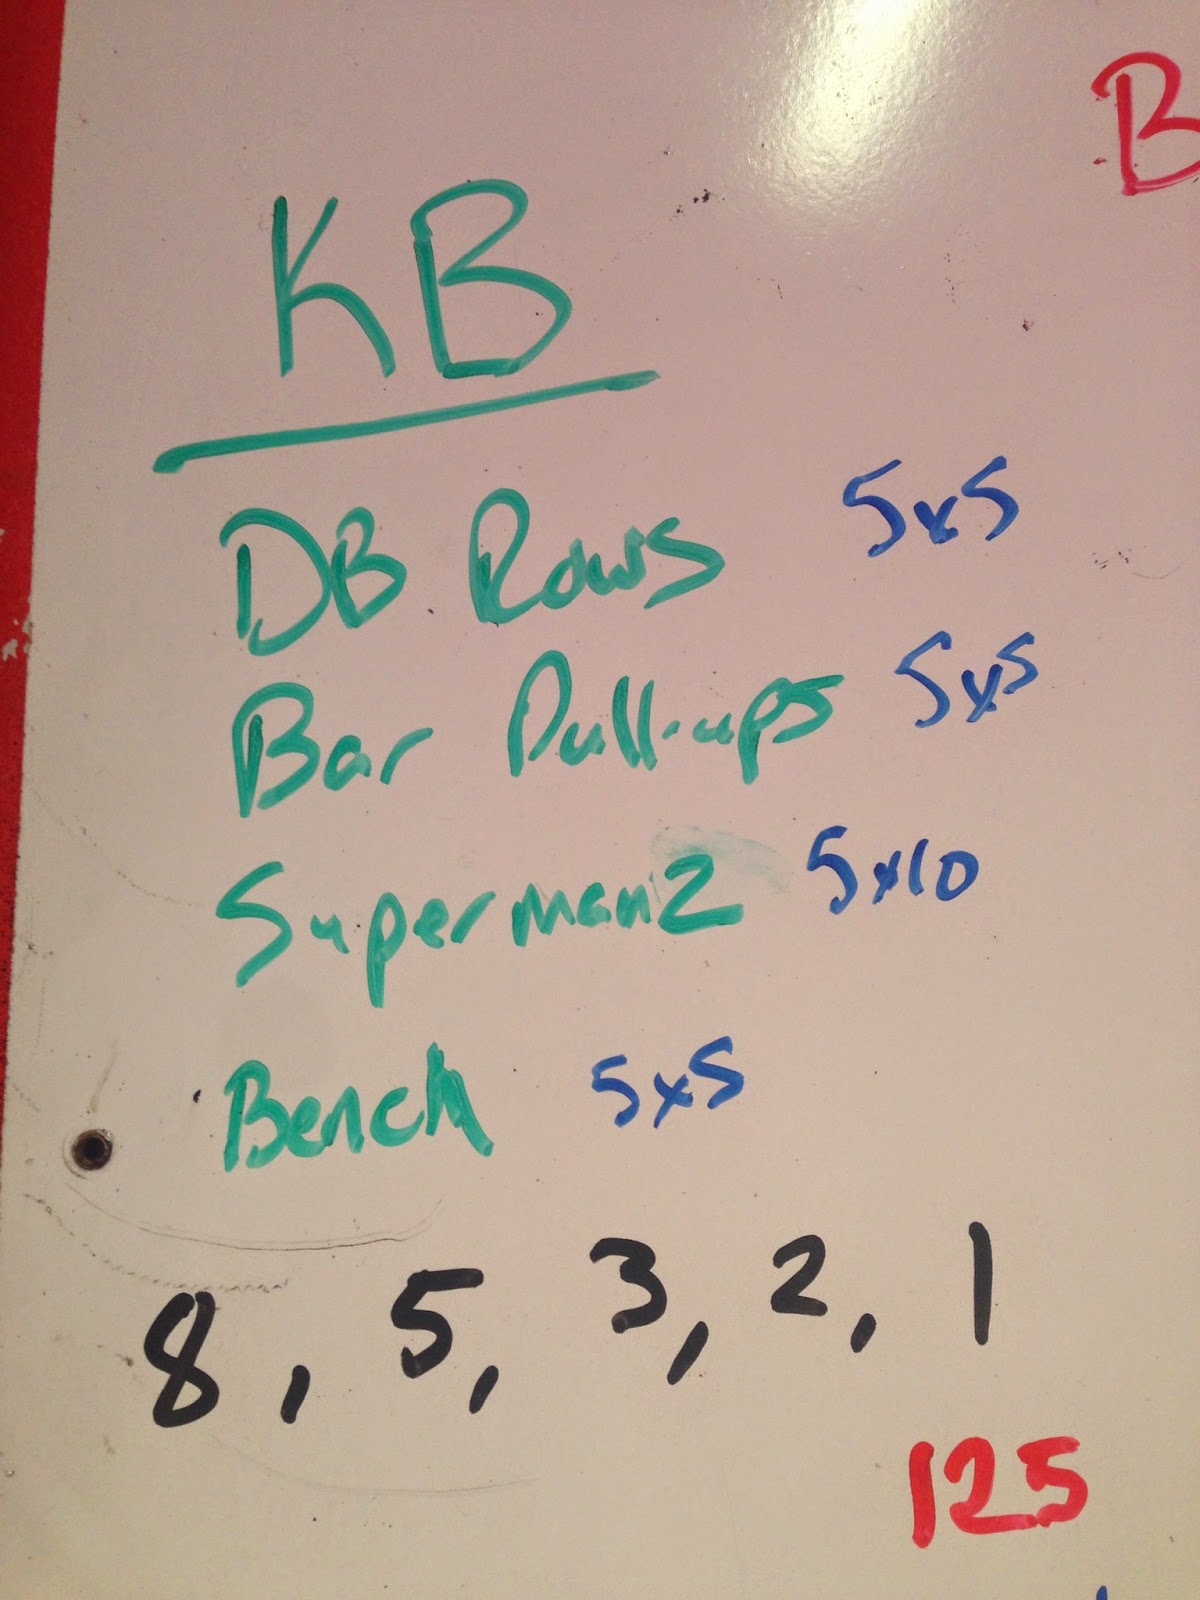 B
KB
DB Rows 5x5
Bar Pull-ups 5x5
Supermanz 5x10
Bench 5x5
8, 5, 3, 2, 1
125